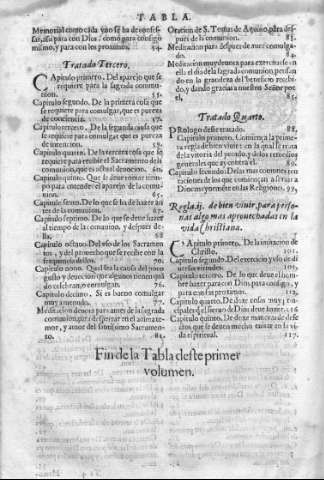 TABLA.
Memorial como cada vno se ha de confes-
sar, assi para con Dios, como para consigo
mismo, y para con los proximos. 54.
Tratado Tercero.
CApitulo primero. Del aparejo que se
requiere para la sagrada comu-
nion. 55.
Capitulo segundo. De la primera cosa que
se requiere para comulgar, que es pureza
de conciencia. 57.
Capitulo tercero. De la segunda cosa que
se requiere para comulgar que es pureza
de intencion.
Capitulo quarto. De la tercera cosa que se
requiere para recebir el Sacramento de la
comunion, que es actual deuocion. 60.
Capitulo quinto. Que se deue tener tiem-
po para entender al aparejo de la comu-
nion.
Capitulo sexto. De lo que se ha de hazer an-
tes de la comunion. 67.
Capitulo septimo. De lo que se deue hazer
al tiempo de la comunion, y despues de
lla. 68
Capitulo octauo. Del vso de los Sacramen-
tos, y del prouecho que se recibe con la
frequencia dellos. 70.
Capitulo nono. Qual sea la causa del poco
gusto y deuocion que algunos tienen quã
do celebran o comulgan. 76.
Capitulo decimo. Si es bueno comulgar
muy a menudo. 77.
Meditacion deuota para antes de la sagrada
comunion, para despertar en el anima te-
mor, y amor del santissimo Sacramen-
to. 81.
Oracion de S. Tomas de Aquino, para des-
pues de la comunion. 83.
Meditacion para despues de auer comulga-
do. 84.
Meditacion muy deuota para exercitarse en
ella el dia de la sagrada comunion, pensan-
do en la grandeza del beneficio recebi-
do, y dando gracias a nuestro Señor por
el. 85.
Tratado Quarto.
PRologo deste tratado. 88.
Capitulo primero. Comiença la prime-
ra regla de bien viuir en la qual se trata
de la vitoria del pecado, y de los remedios
generales que ay contra el. 89.
Capitulo segundo. De las mas comunes ten-
taciones de los que comiençan a seruir a
Dios mayormente en las Religiones. 99.
Regla.ij. de bien viuir, para perso-
nas algo mas aprouechadas en la
vida Christiana.
CApitulo primero. De la imitacion de
Christo. 101.
Capitulo segundo. Del exercicio y vso de di
uersas virtudes.
Capitulo tercero. De lo que deue el hom-
bre hazer para con Dios, para consigo, y
para con sus proximos. 112.
Capitulo quarto. De doze cosas muy
principales que el siervo de Dios deue hazer. 116
Capitulo quinto. De doze maneras de defe-
ctos que se deuen mucho euitar en la vi-
da espiritual. 117.
Fin de la Tabla deste primer
volumen.